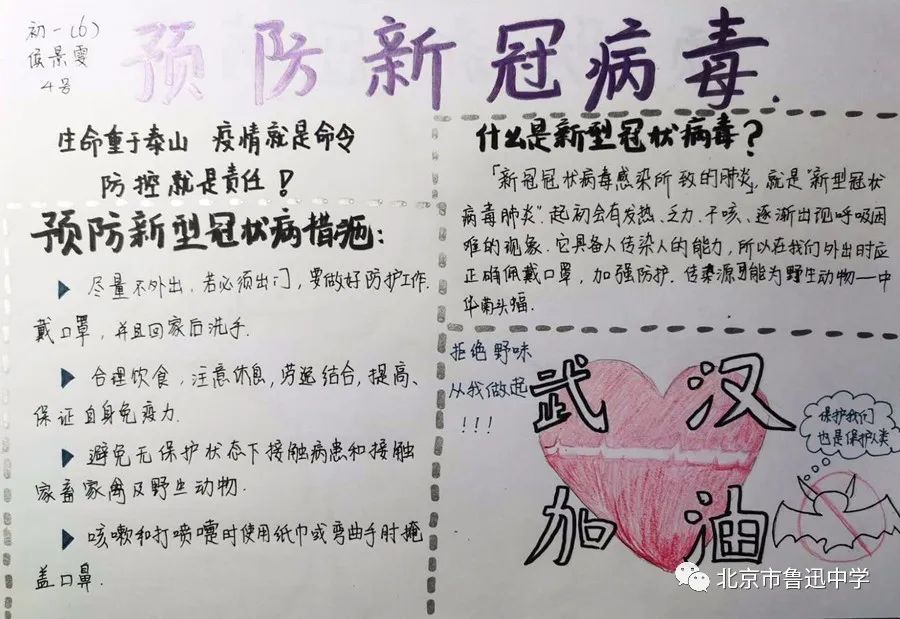 初一(6)
侯景雯
4号
预防新冠病毒.
生命重于泰山 疫情就是命令
防控就是责任!
预防新型冠状病措施:
尽量不外出,若必须出门,要做好防护工作.
戴口罩,并且回家后洗手.
合理饮食,注意休息,劳逸结合,提高、
保证自身免疫力.
避免无保护状态下接触病患和接触
家畜家禽及野生动物.
咳嗽和打喷嚏时使用纸巾或弯曲手肘掩
盖口鼻.
什么是新型冠状病毒?
「新冠冠状病毒感染所致的肺炎」就是"新型冠状
病毒肺炎".起初会有发热、乏力、干咳、逐渐出现呼吸困
难的现象.它具备人传染人的能力,所以在我们外出时应
正确佩戴口罩,加强防护.传染源可能为野生动物—中
华菊头蝠.
拒绝野味
从我做起
!!!
武汉
加油
保护我们
也是保护人类
北京市鲁迅中学